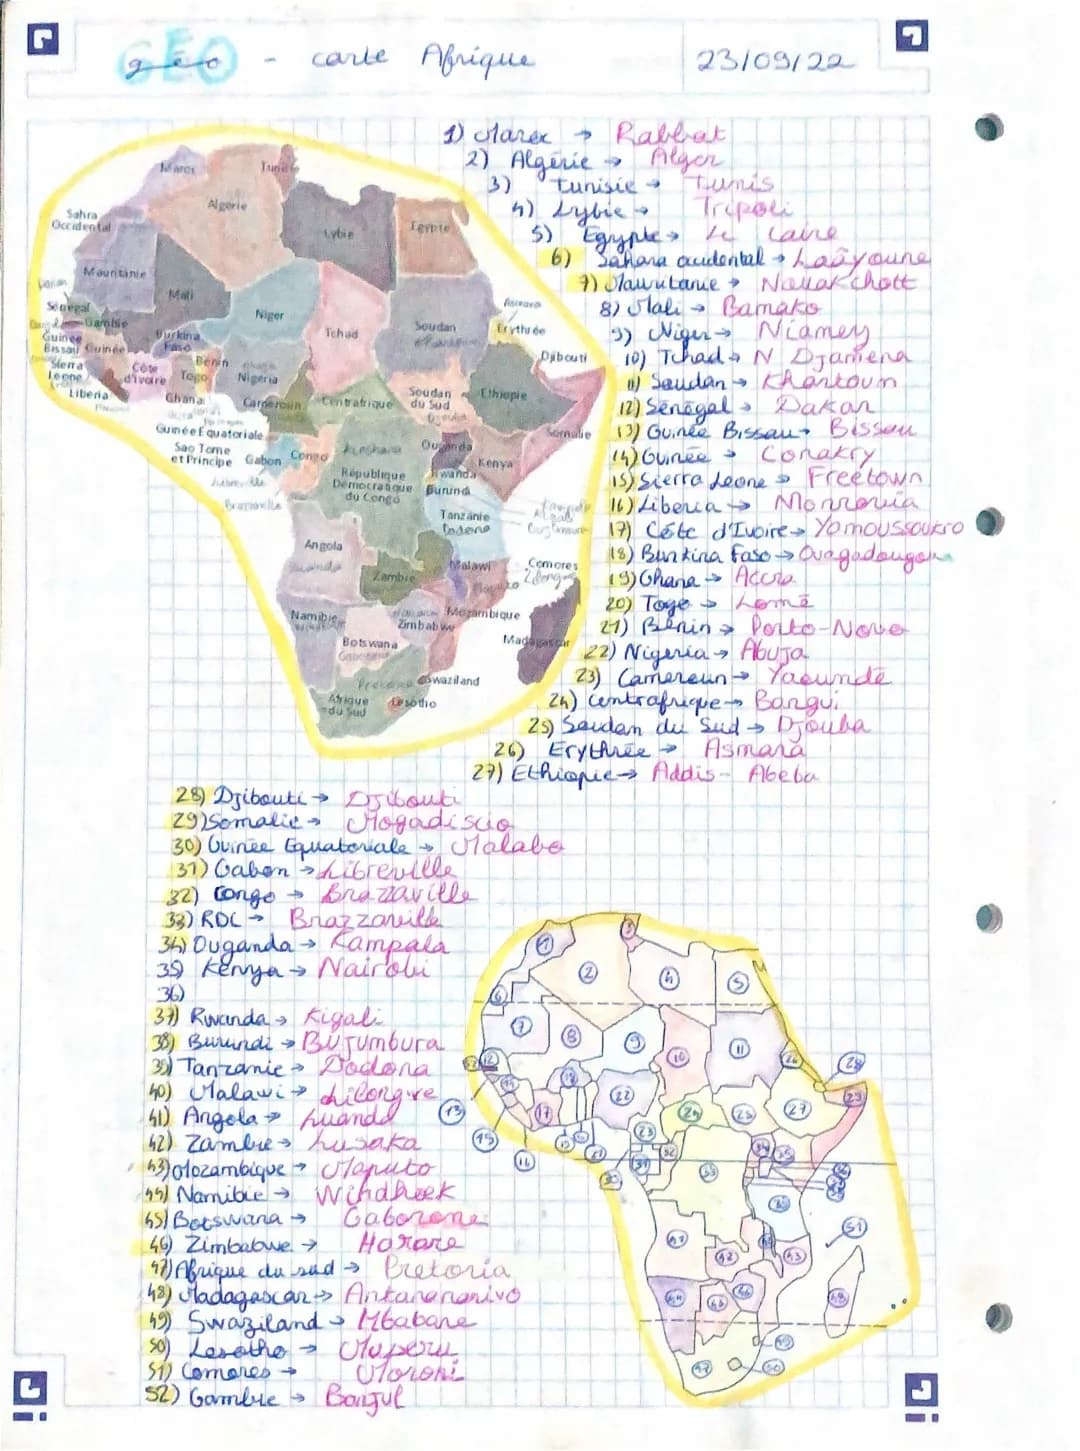 GÉO - carte Afrique
23/09/22
1) Maroc → Rabbat
2) Algérie → Alger
3) Tunisie → Tunis
4) Lybie → Tripoli
5) Egypte → Le Caire
6) Sahara occidental → Laâyoune
7) Mauritanie → Nouakchott
8) Mali → Bamako
9) Niger → Niamey
10) Tchad → N Djamena
11) Soudan → Khartoum
12) Sénégal → Dakar
13) Guinée Bissau → Bissau
14) Guinée → Conakry
15) Sierra Leone → Freetown
16) Liberia → Monrovia
17) Côte d'Ivoire → Yamoussoukro
18) Burkina Faso → Ouagadougou
19) Ghana → Accra
20) Togo → Lomé
21) Bénin → Porto-Novo
22) Nigeria → Abuja
23) Cameroun → Yaoundé
24) Centrafrique → Bangui
25) Soudan du Sud → Djouba
26) Erythrée → Asmara
27) Ethiopie → Addis-Abeba
28) Djibouti → Djibouti
29) Somalie → Mogadiscio
30) Guinée Equatoriale → Malabo
31) Gabon → Libreville
32) Congo → Brazzaville
33) RDC → Brazzaville
34) Ouganda → Kampala
35) Kenya → Nairobi
36)
37) Rwanda → Kigali
38) Burundi → Bujumbura
39) Tanzanie → Dodona
40) Malawi → Lilongwe
41) Angola → Luanda
42) Zambie → Lusaka
43) Mozambique → Maputo
44) Namibie → Windhoek
45) Botswana → Gaborone
46) Zimbabwe → Harare
47) Afrique du sud → Pretoria
48) Madagascar → Antananarivo
49) Swaziland → Mbabane
50) Lesotho → Muperu
51) Comores → Moroni
52) Gambie → Banjul
Maroc
Tunisie
Algerie
Lybie
Egypte
Sahra
Occidental
Mauritanie
Mali
Niger
Tchad
Soudan
Asmara
Erythrée
Djibouti
Sénégal
Gambie
Guinée
Bissau
Guinée
Burkina
Faso
Sierra
Leone
Liberia
Côte
d'Ivoire
Ghana
Togo
Benin
Nigeria
Cameroun
Centrafrique
Soudan
du Sud
Ethiopie
Somalie
Guinée Equatoriale
Sao Tome
et Principe
Gabon
Congo
Kinshasa
République
Démocratique
du Congo
Ouganda
Kenya
Rwanda
Burundi
Tanzanie
Dodona
Angola
Luanda
Zambie
Malawi
Comores
Mozambique
Zimbabwe
Namibie
Botswana
Madagascar
Pretoria
Swaziland
Afrique
du Sud
Lesotho
1
2
3
4
5
6
7
8
9
10
11
12
13
14
15
16
17
18
22
23
24
25
26
27
28
29
30
31
32
33
34
35
39
41
42
43
44
45
46
47
48
49
50
51